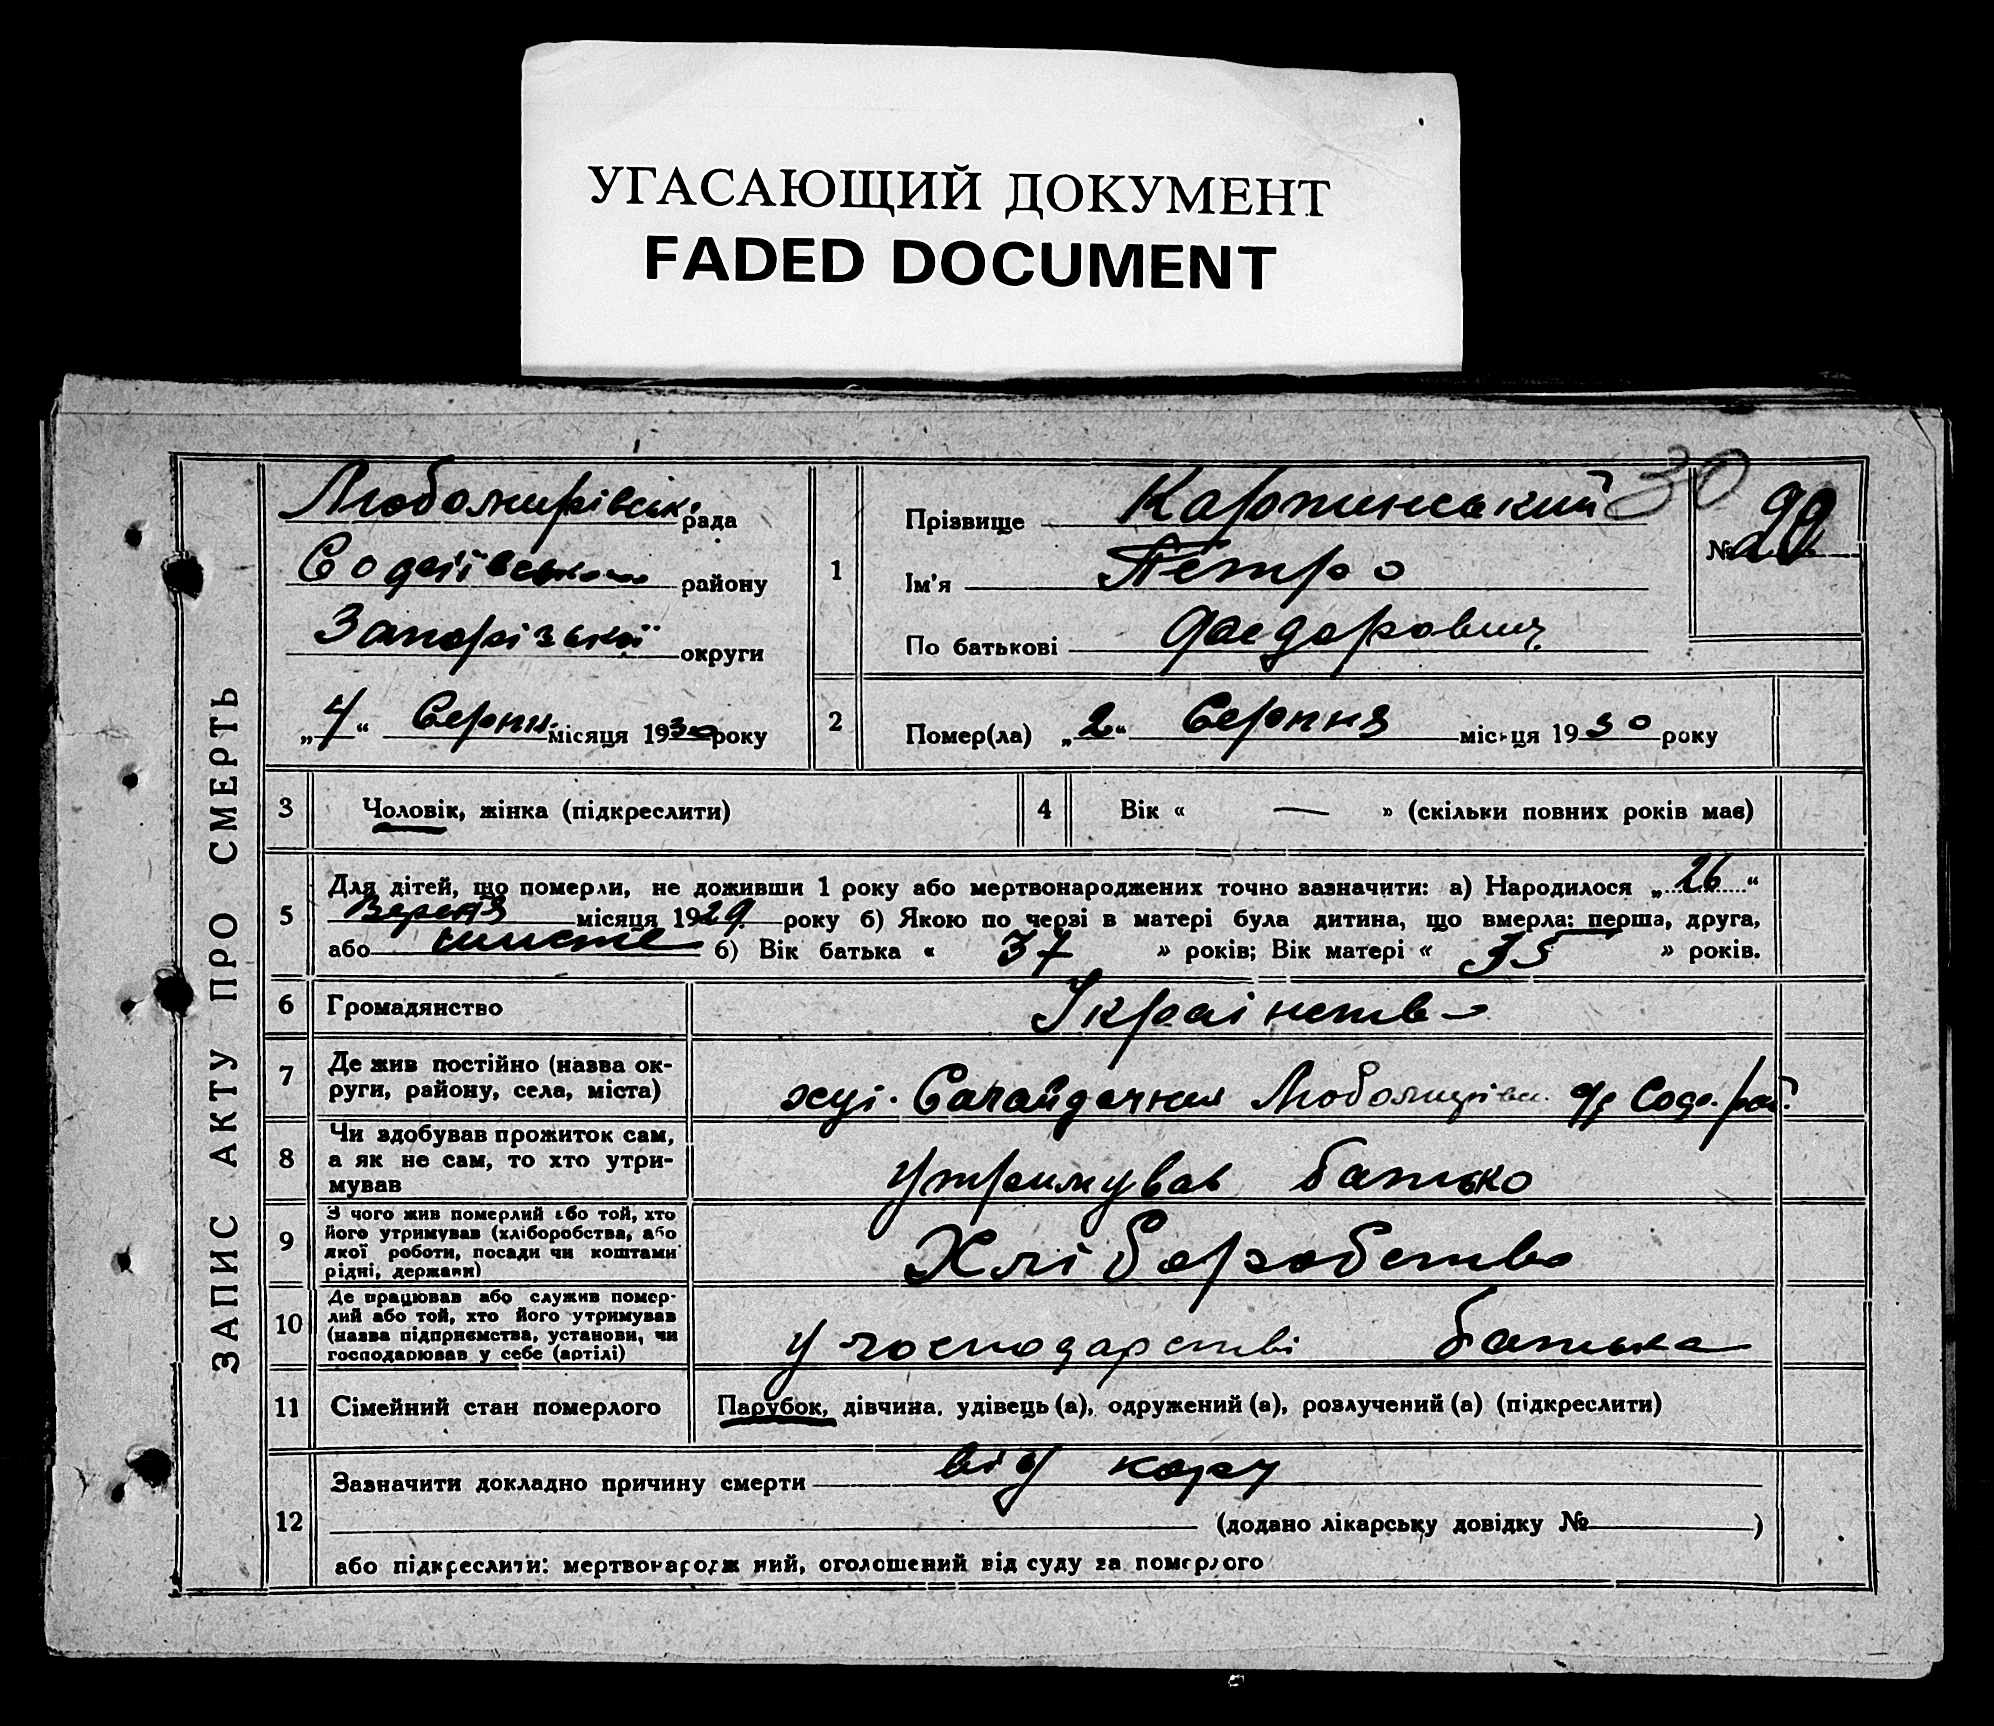 УГАСАЮЩИЙ ДОКУМЕНТ
FADED DOCUMENT
ЗАПИС АКТУ ПРО СМЕРТЬ
Любомирівськ. рада
Софіївського району
Запорізької округи
„4“ Серпн. місяця 1930 року
30
№ 29
1
Прізвище Карпинський
Ім'я Петро
По батькові Федорович
2
Помер(ла) „2“ Серпня місяця 1930 року
3 Чоловік, жінка (підкреслити)
4 Вік « — » (скільки повних років має)
5
Для дітей, що померли, не доживши 1 року або мертвонароджених точно зазначити: а) Народилося „26“
Вересня місяця 1929 року б) Якою по черзі в матері була дитина, що вмерла: перша, друга,
або шосте б) Вік батька « 37 » років; Вік матері « 35 » років.
6 Громадянство
Українство
7
Де жив постійно (назва ок-
руги, району, села, міста)
хут. Сагайдачний Любомирівс. Соф. рай.
8
Чи здобував прожиток сам,
а як не сам, то хто утри-
мував
утримував батько
9
З чого жив померлий або той, хто
його утримував (хліборобства, або
якої роботи, посади чи коштами
рідні, держави)
Хліборобство
10
Де працював або служив помер-
лий або той, хто його утримував
(назва підприємства, установи, чи
господарював у себе (артілі)
у господарстві батька
11 Сімейний стан померлого
Парубок, дівчина, удівець (а), одружений (а), розлучений (а) (підкреслити)
12
Зазначити докладно причину смерти від кору
(додано лікарську довідку № )
або підкреслити: мертвонароджений, оголошений від суду за померлого